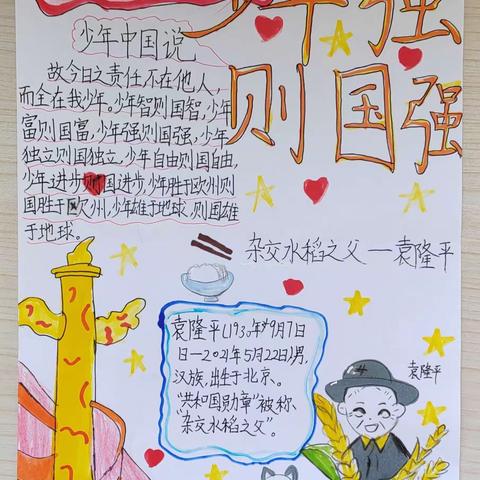 少年强
则国强
少年中国说
故今日之责任,不在他人,
而全在我少年。少年智则国智,少年
富则国富,少年强则国强,少年
独立则国独立,少年自由则国自由,
少年进步则国进步,少年胜于欧州则
国胜于欧州,少年雄于地球,则国雄
于地球。
杂交水稻之父——袁隆平
袁隆平(1930年9月7日
日—2021年5月22日)男,
汉族,出生于北京、
“共和国勋章”被称、
“杂交水稻之父”。
袁隆平